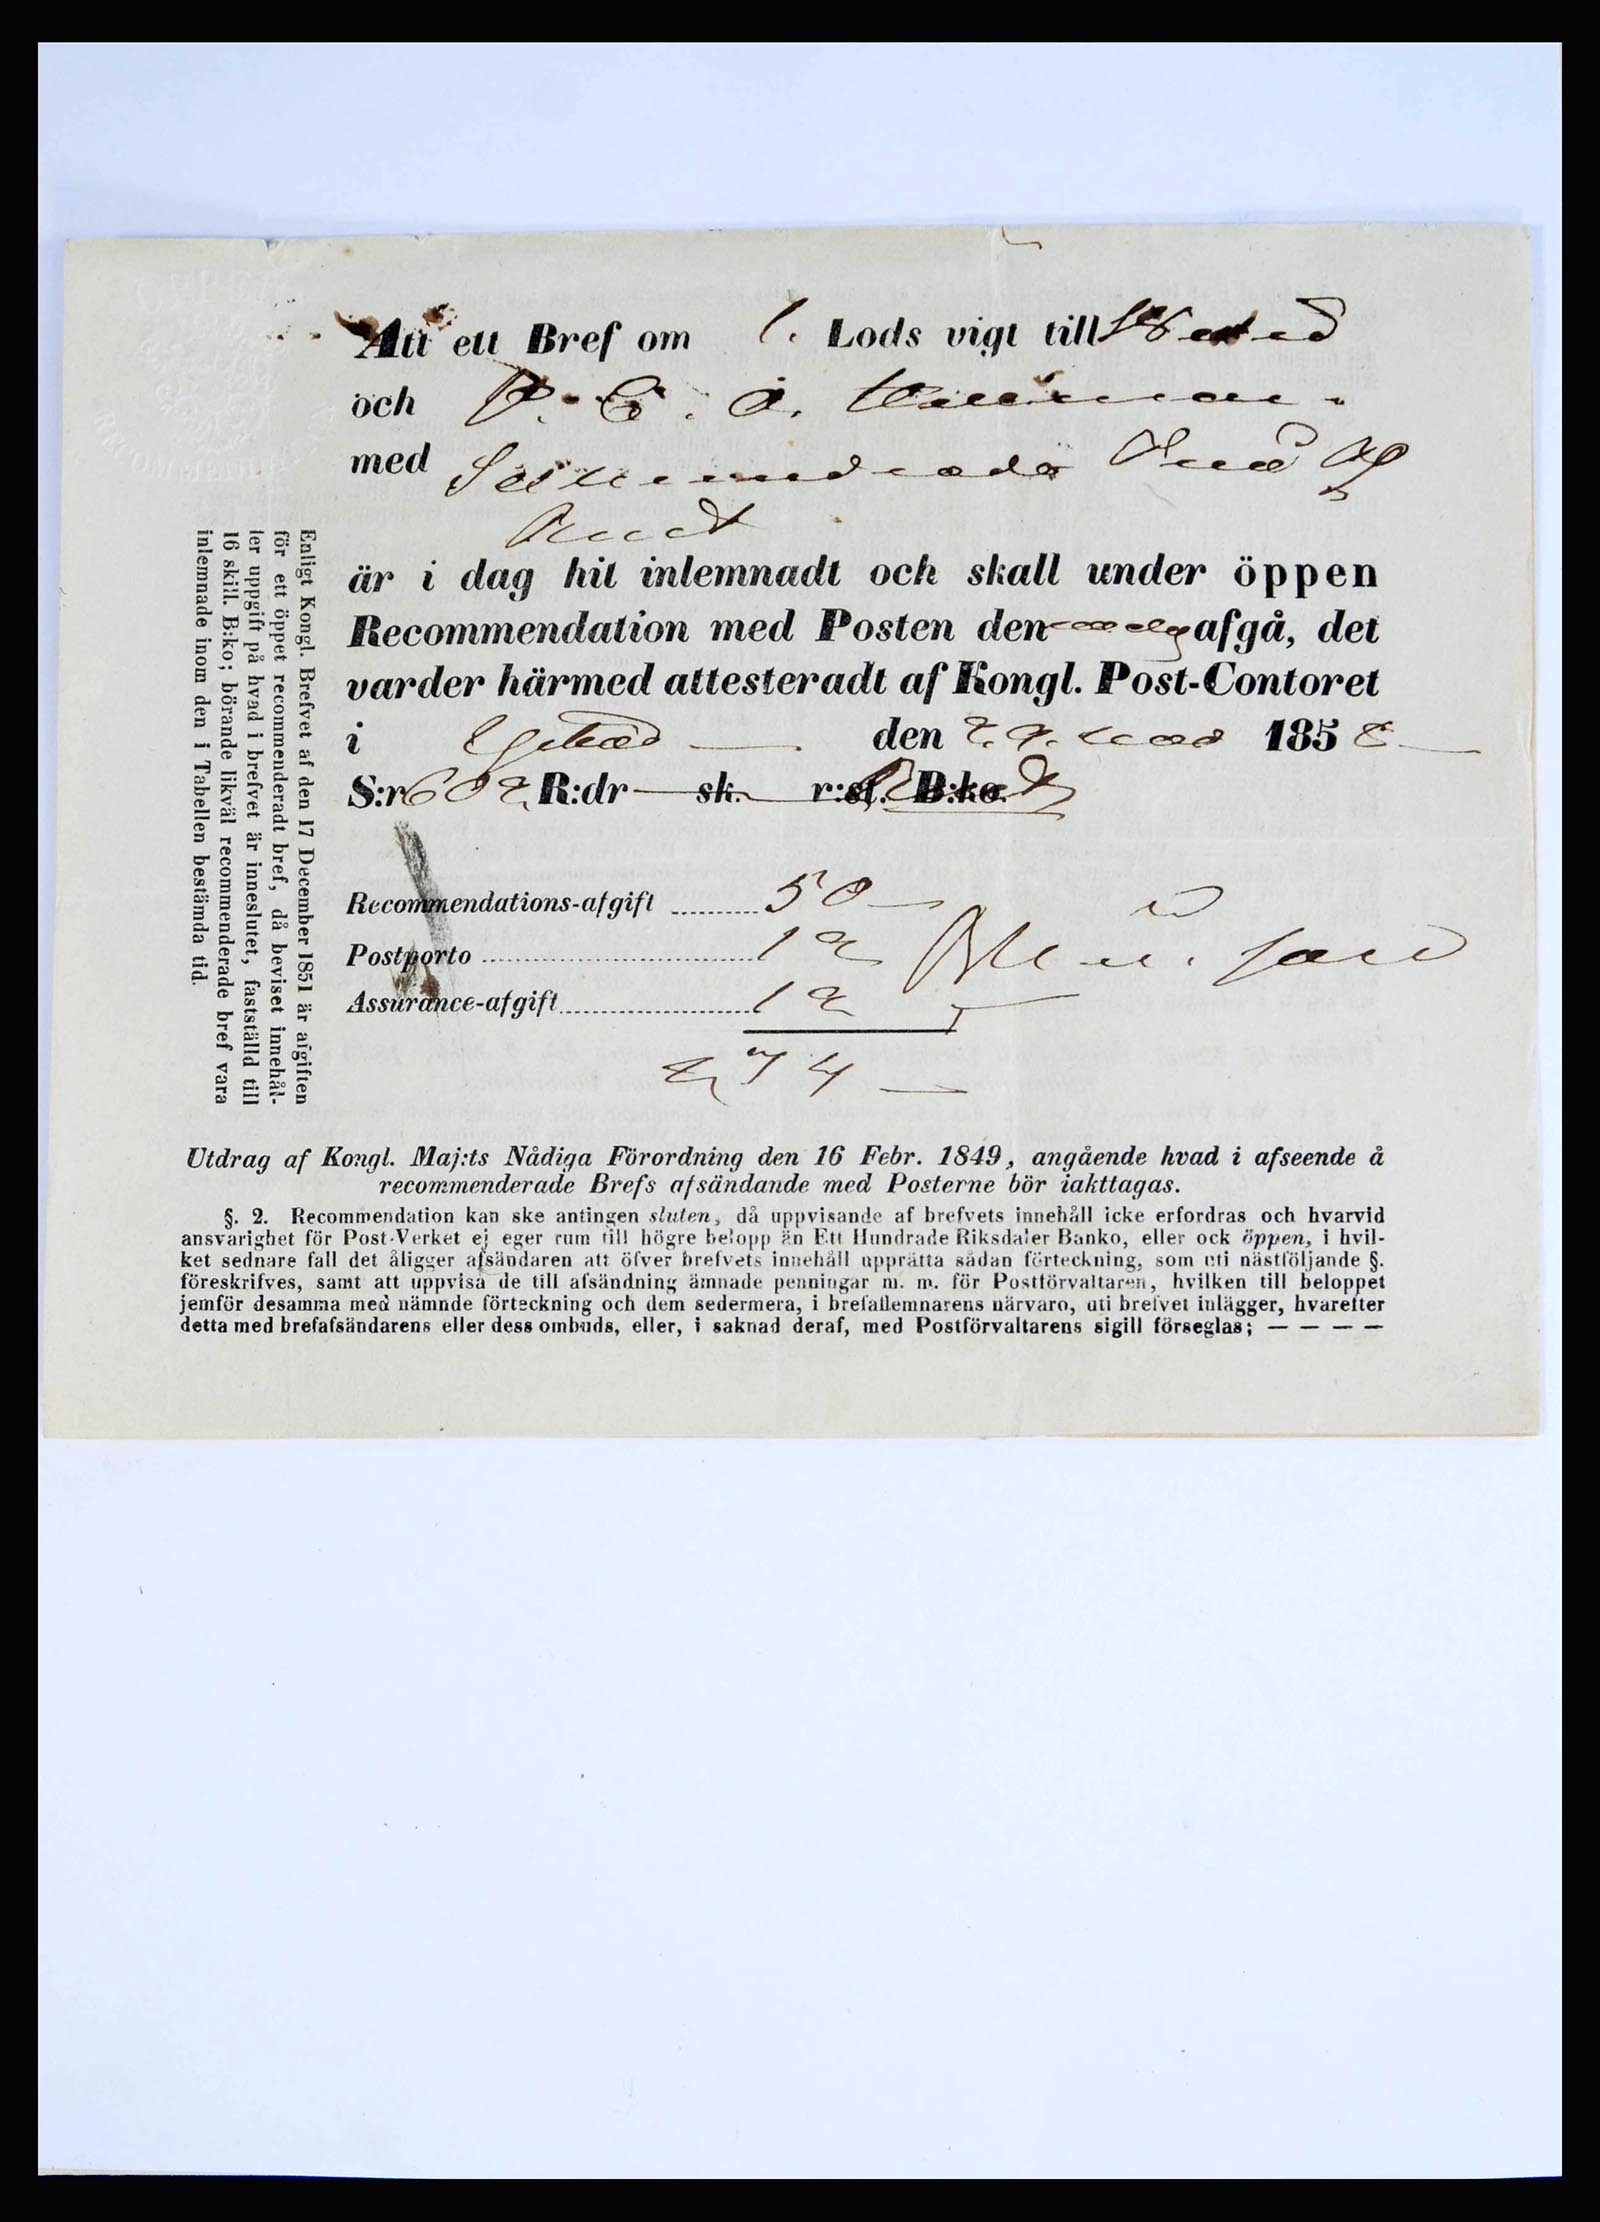 Att ett Bref om 1. Lods vigt till
och P. E. O.
med
är i dag hit inlemnadt och skall under öppen
Recommendation med Posten den afgå, det
varder härmed attesteradt af Kongl. Post-Contoret
i den 29. 1858
S:r 602 R:dr — sk. — r:st. B:ko.
Recommendations-afgift 50 —
Postporto 12
Assurance-afgift 12
74 —
Enligt Kongl. Brefvet af den 17 December 1851 är afgiften
för ett öppet recommenderadt bref, då beviset innehål-
ler uppgift på hvad i brefvet är inneslutet, fastställd till
16 skill. B:ko; börande likväl recommenderade bref vara
inlemnade inom den i Tabellen bestämda tid.
Utdrag af Kongl. Maj:ts Nådiga Förordning den 16 Febr. 1849, angående hvad i afseende å
recommenderade Brefs afsändande med Posterne bör iakttagas.
§. 2. Recommendation kan ske antingen sluten, då uppvisande af brefvets innehåll icke erfordras och hvarvid
ansvarighet för Post-Verket ej eger rum till högre belopp än Ett Hundrade Riksdaler Banko, eller ock öppen, i hvil-
ket sednare fall det åligger afsändaren att öfver brefvets innehåll upprätta sådan förteckning, som uti nästföljande §.
föreskrifves, samt att uppvisa de till afsändning ämnade penningar m. m. för Postförvaltaren, hvilken till beloppet
jemför desamma med nämnde förteckning och dem sedermera, i brefaflemnarens närvaro, uti brefvet inlägger, hvarefter
detta med brefafsändarens eller dess ombuds, eller, i saknad deraf, med Postförvaltarens sigill förseglas; — — — —